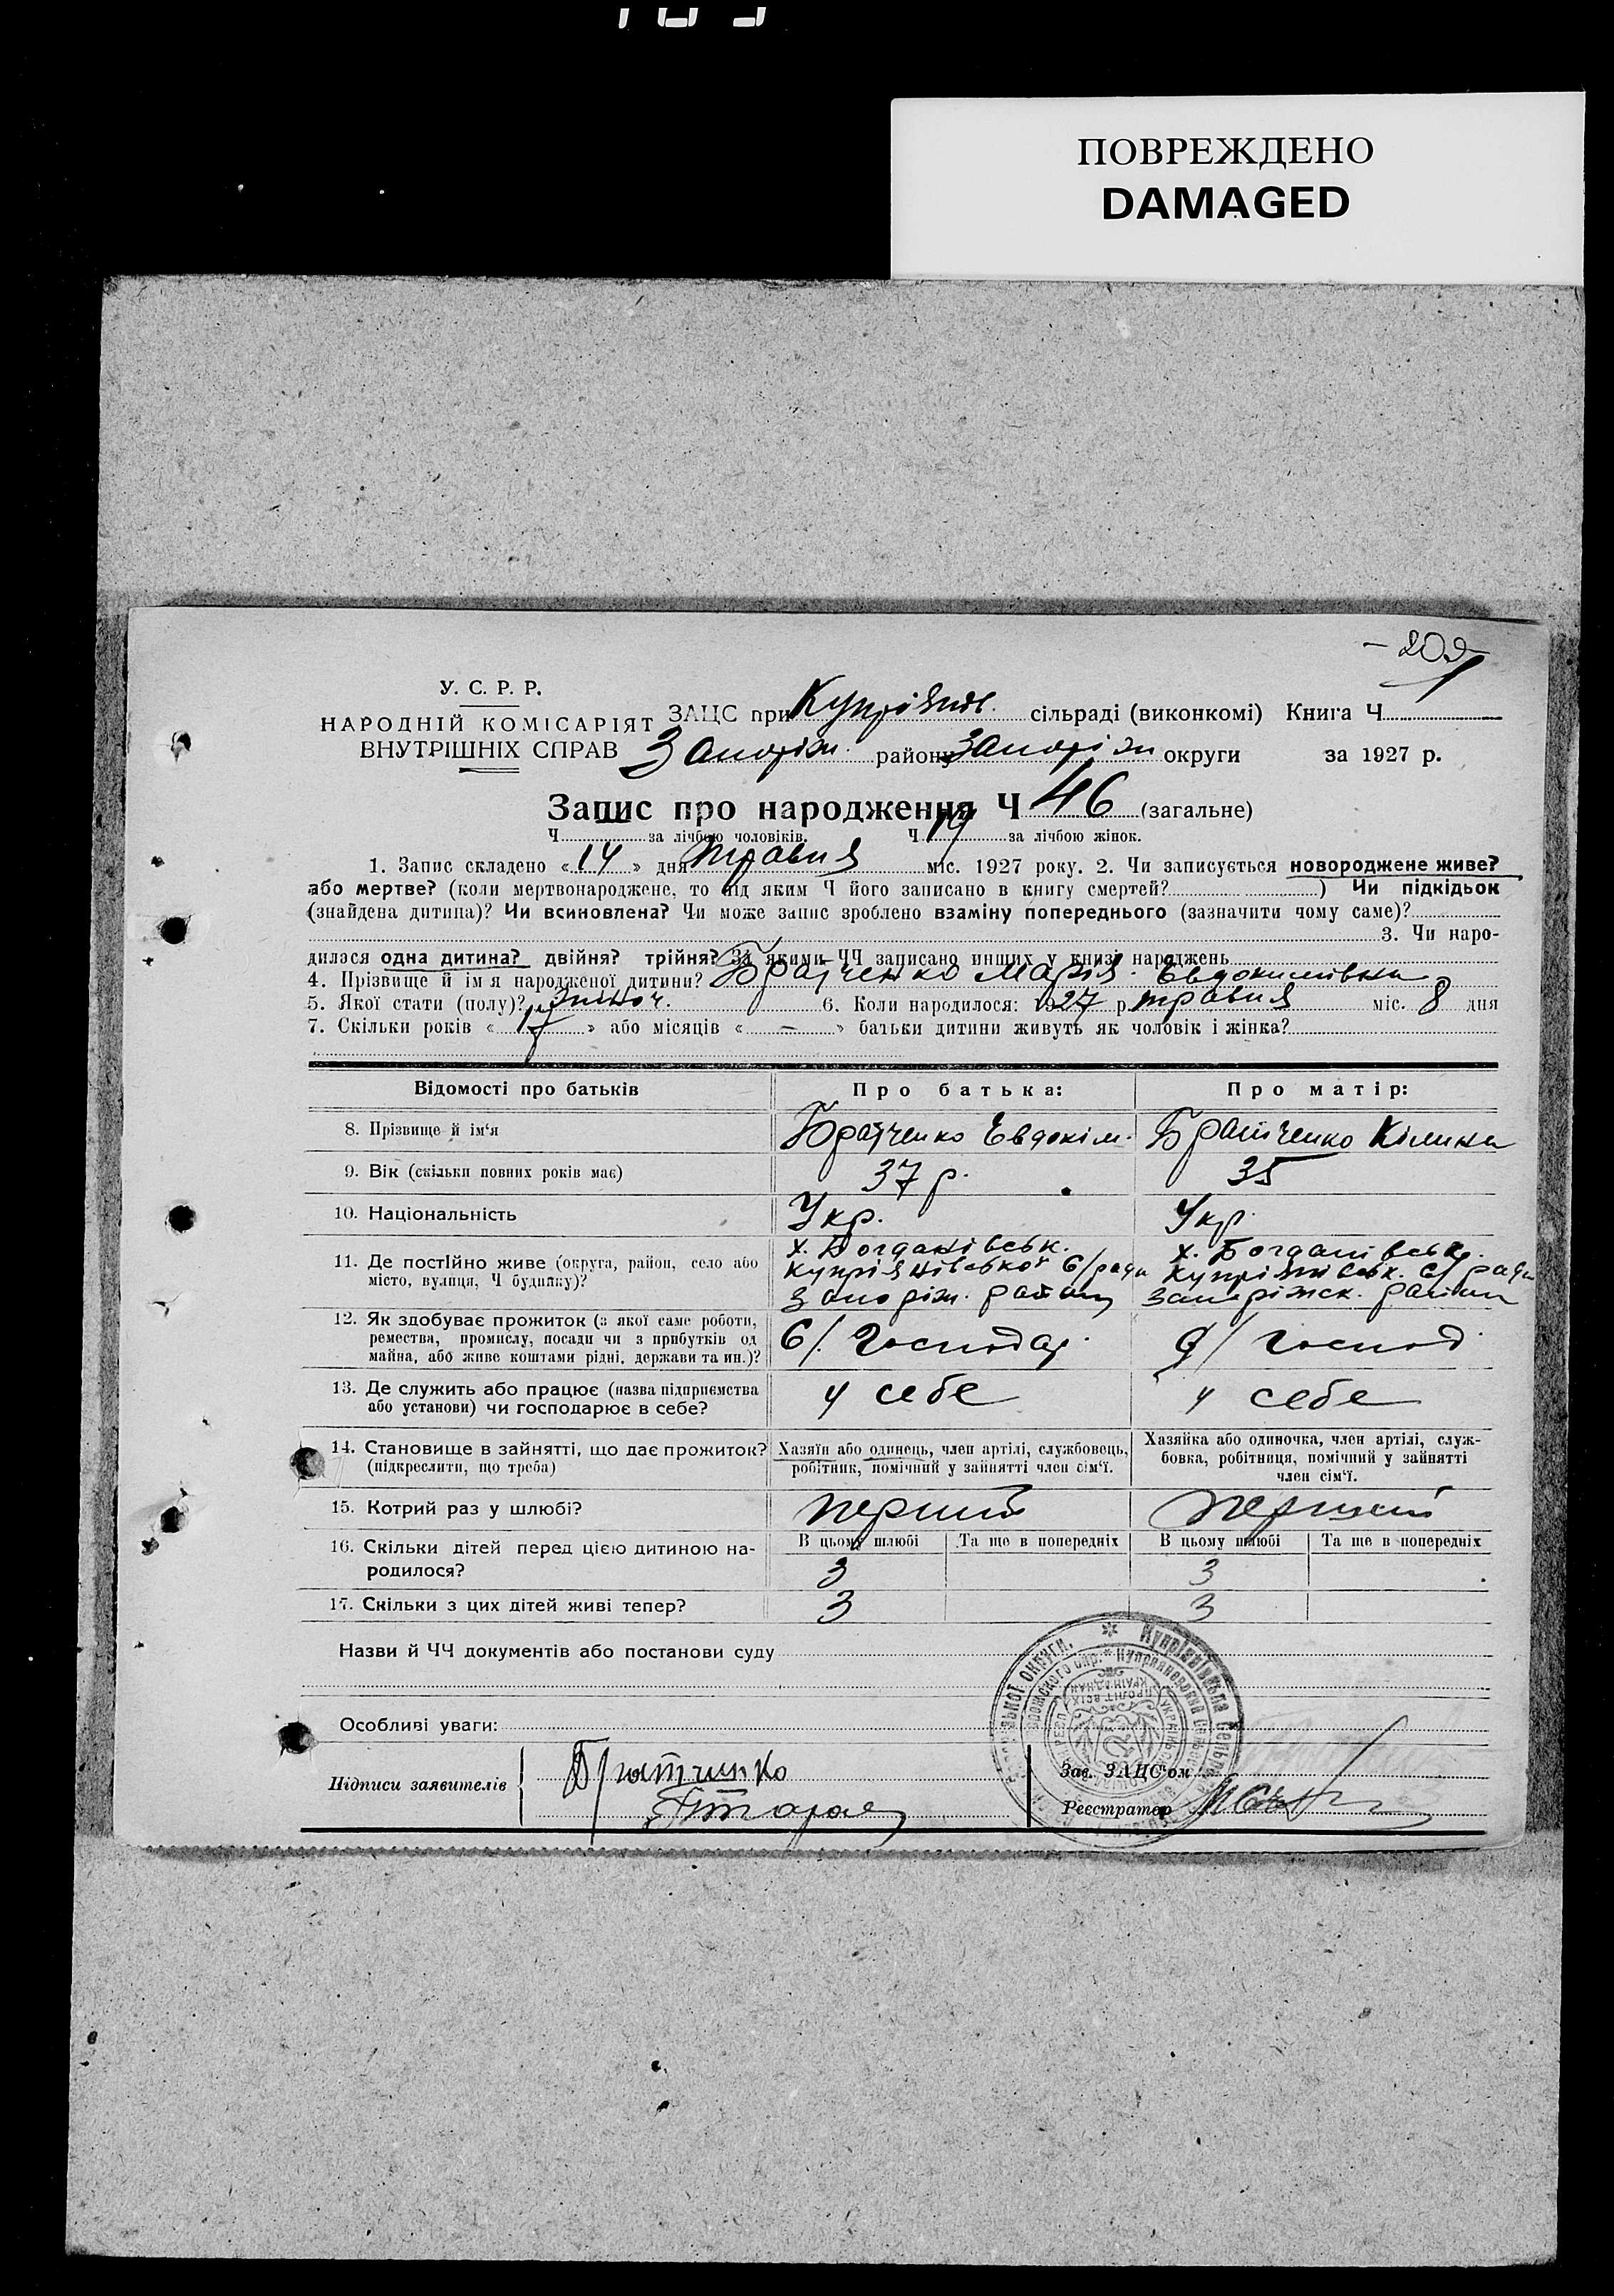 ПОВРЕЖДЕНО
DAMAGED
У. С. Р. Р.
НАРОДНІЙ КОМІСАРІЯТ
ВНУТРІШНІХ СПРАВ
ЗАЦС при Купріянів. сільраді (виконкомі) Книга Ч
Запоріж. району Запоріж округи за 1927 р.
Запис про народження Ч 46 (загальне)
Ч за лічбою чоловіків. Ч 19 за лічбою жінок.
1. Запис складено « 14 » дня травня міс. 1927 року. 2. Чи записується новороджене живе?
або мертве? (коли мертвонароджене, то під яким Ч його записано в книгу смертей? ) Чи підкідьок
(знайдена дитина)? Чи всиновлена? Чи може запис зроблено взаміну попереднього (зазначити чому саме)?
3. Чи наро-
дилася одна дитина? двійня? трійня? За якими ЧЧ записано инших у книзі народжень
4. Прізвище й ім'я народженої дитини? Братченко Марія Евдокимівна
5. Якої стати (полу)? жіноч. 6. Коли народилося: 1927 р. травня міс. 8 дня
7. Скільки років « » або місяців « – » батьки дитини живуть як чоловік і жінка?
Відомості про батьків Про батька: Про матір:
8. Прізвище й ім'я Братченко Евдокім. Братченко Килина
9. Вік (скільки повних років має) 37 р. 35
10. Національність Укр. Укр.
11. Де постійно живе (округа, район, село або
місто, вулиця, Ч будинку)?
х. Богданівськ.
Купріянівської С/ради
Запоріж. району
х. Богданівськ.
Купріянівськ. С/ради
Запоріжск. району
12. Як здобуває прожиток (з якої саме роботи,
ремества, промислу, посади чи з прибутків од
майна, або живе коштами рідні, держави та ин.)?
С/. Господар
Д/ господ.
13. Де служить або працює (назва підприємства
або установи) чи господарює в себе?
у себе у себе
14. Становище в зайнятті, що дає прожиток?
(підкреслити, що треба)
Хазяїн або одинець, член артілі, службовець,
робітник, помічний у зайнятті член сім'ї.
Хазяйка або одиночка, член артілі, служ-
бовка, робітниця, помічний у зайнятті
член сім'ї.
15. Котрий раз у шлюбі? перший перший
16. Скільки дітей перед цією дитиною на-
родилося?
В цьому шлюбі Та ще в попередніх В цьому шлюбі Та ще в попередніх
3 3
17. Скільки з цих дітей живі тепер? 3 3
Назви й ЧЧ документів або постанови суду
Особливі уваги:
Підписи заявителів Братченко
Зав. ЗАЦС'ом
Реєстратор